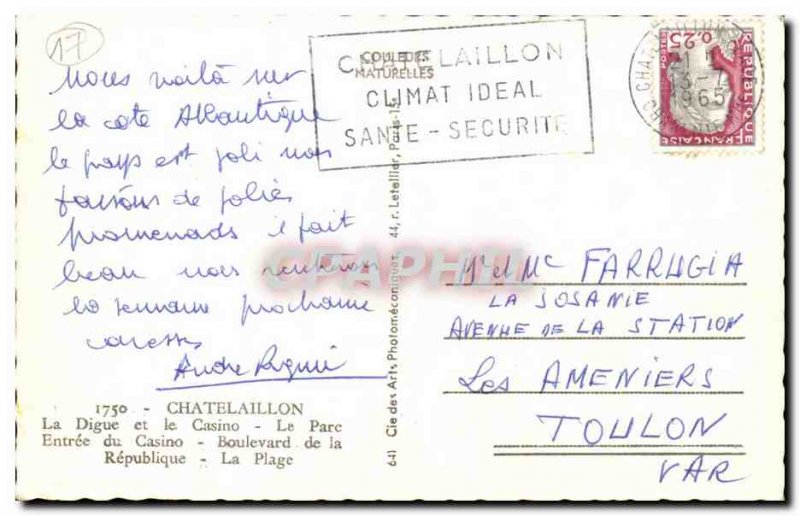 17
nous voilà sur
la cote Atlantique
le pays est joli nous
faisons de jolies
promenads il fait
beau nous rentrerons
la semaine prochaine
caresses
André
1750 - CHATELAILLON
La Digue et le Casino - Le Parc
Entrée du Casino - Boulevard de la
République - La Plage
COULEURS
NATURELLES
CHATELAILLON
CLIMAT IDEAL
SANTE - SECURITE
641 Cie des Arts Photomécaniques, 44, r. Letellier, Paris-15e
CPAPHIL
0,25
POSTES
REPUBLIQUE
FRANÇAISE
1965
Mr et Me FARRUGIA
LA JOSANIE
AVENUE DE LA STATION
Les AMENIERS
TOULON
VAR